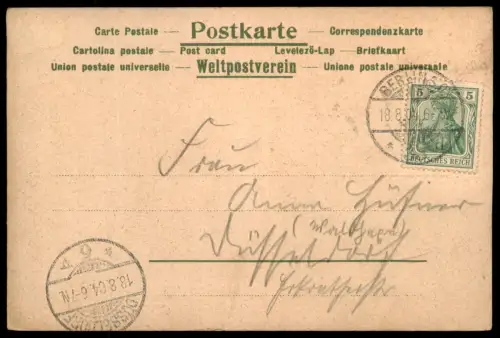 Carte Postale — Postkarte — Correspondenzkarte
Cartolina postale — Post card Levelező-Lap — Briefkaart
Union postale universelle — Weltpostverein — Unione postale universale
BERLIN
18.8.04. 6-7N.
5 5
DEUTSCHES REICH
Frau
Anna Hüfner
Düsseldorf
18.8.04. 6-7N.